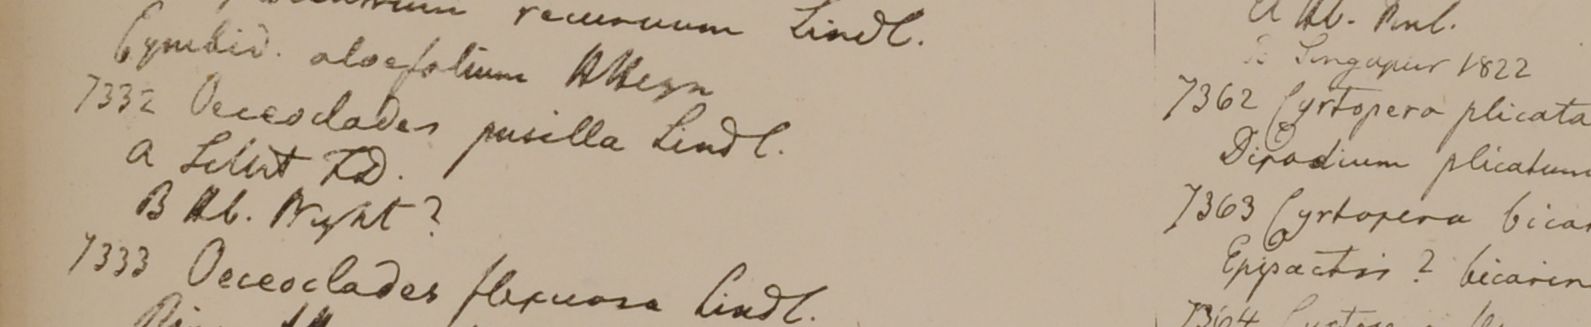 recurvum Lindl.
Cymbid. aloefolium
7332 Oeceoclades pusilla Lindl.
a
B Hb. Wight?
7333 Oeceoclades flexuosa Lindl.
Hb.
Singapur 1822
7362 Cyrtopera plicata
Dipodium plicatum
7363 Cyrtopera bicar
Epipactis ? bicarin
7364